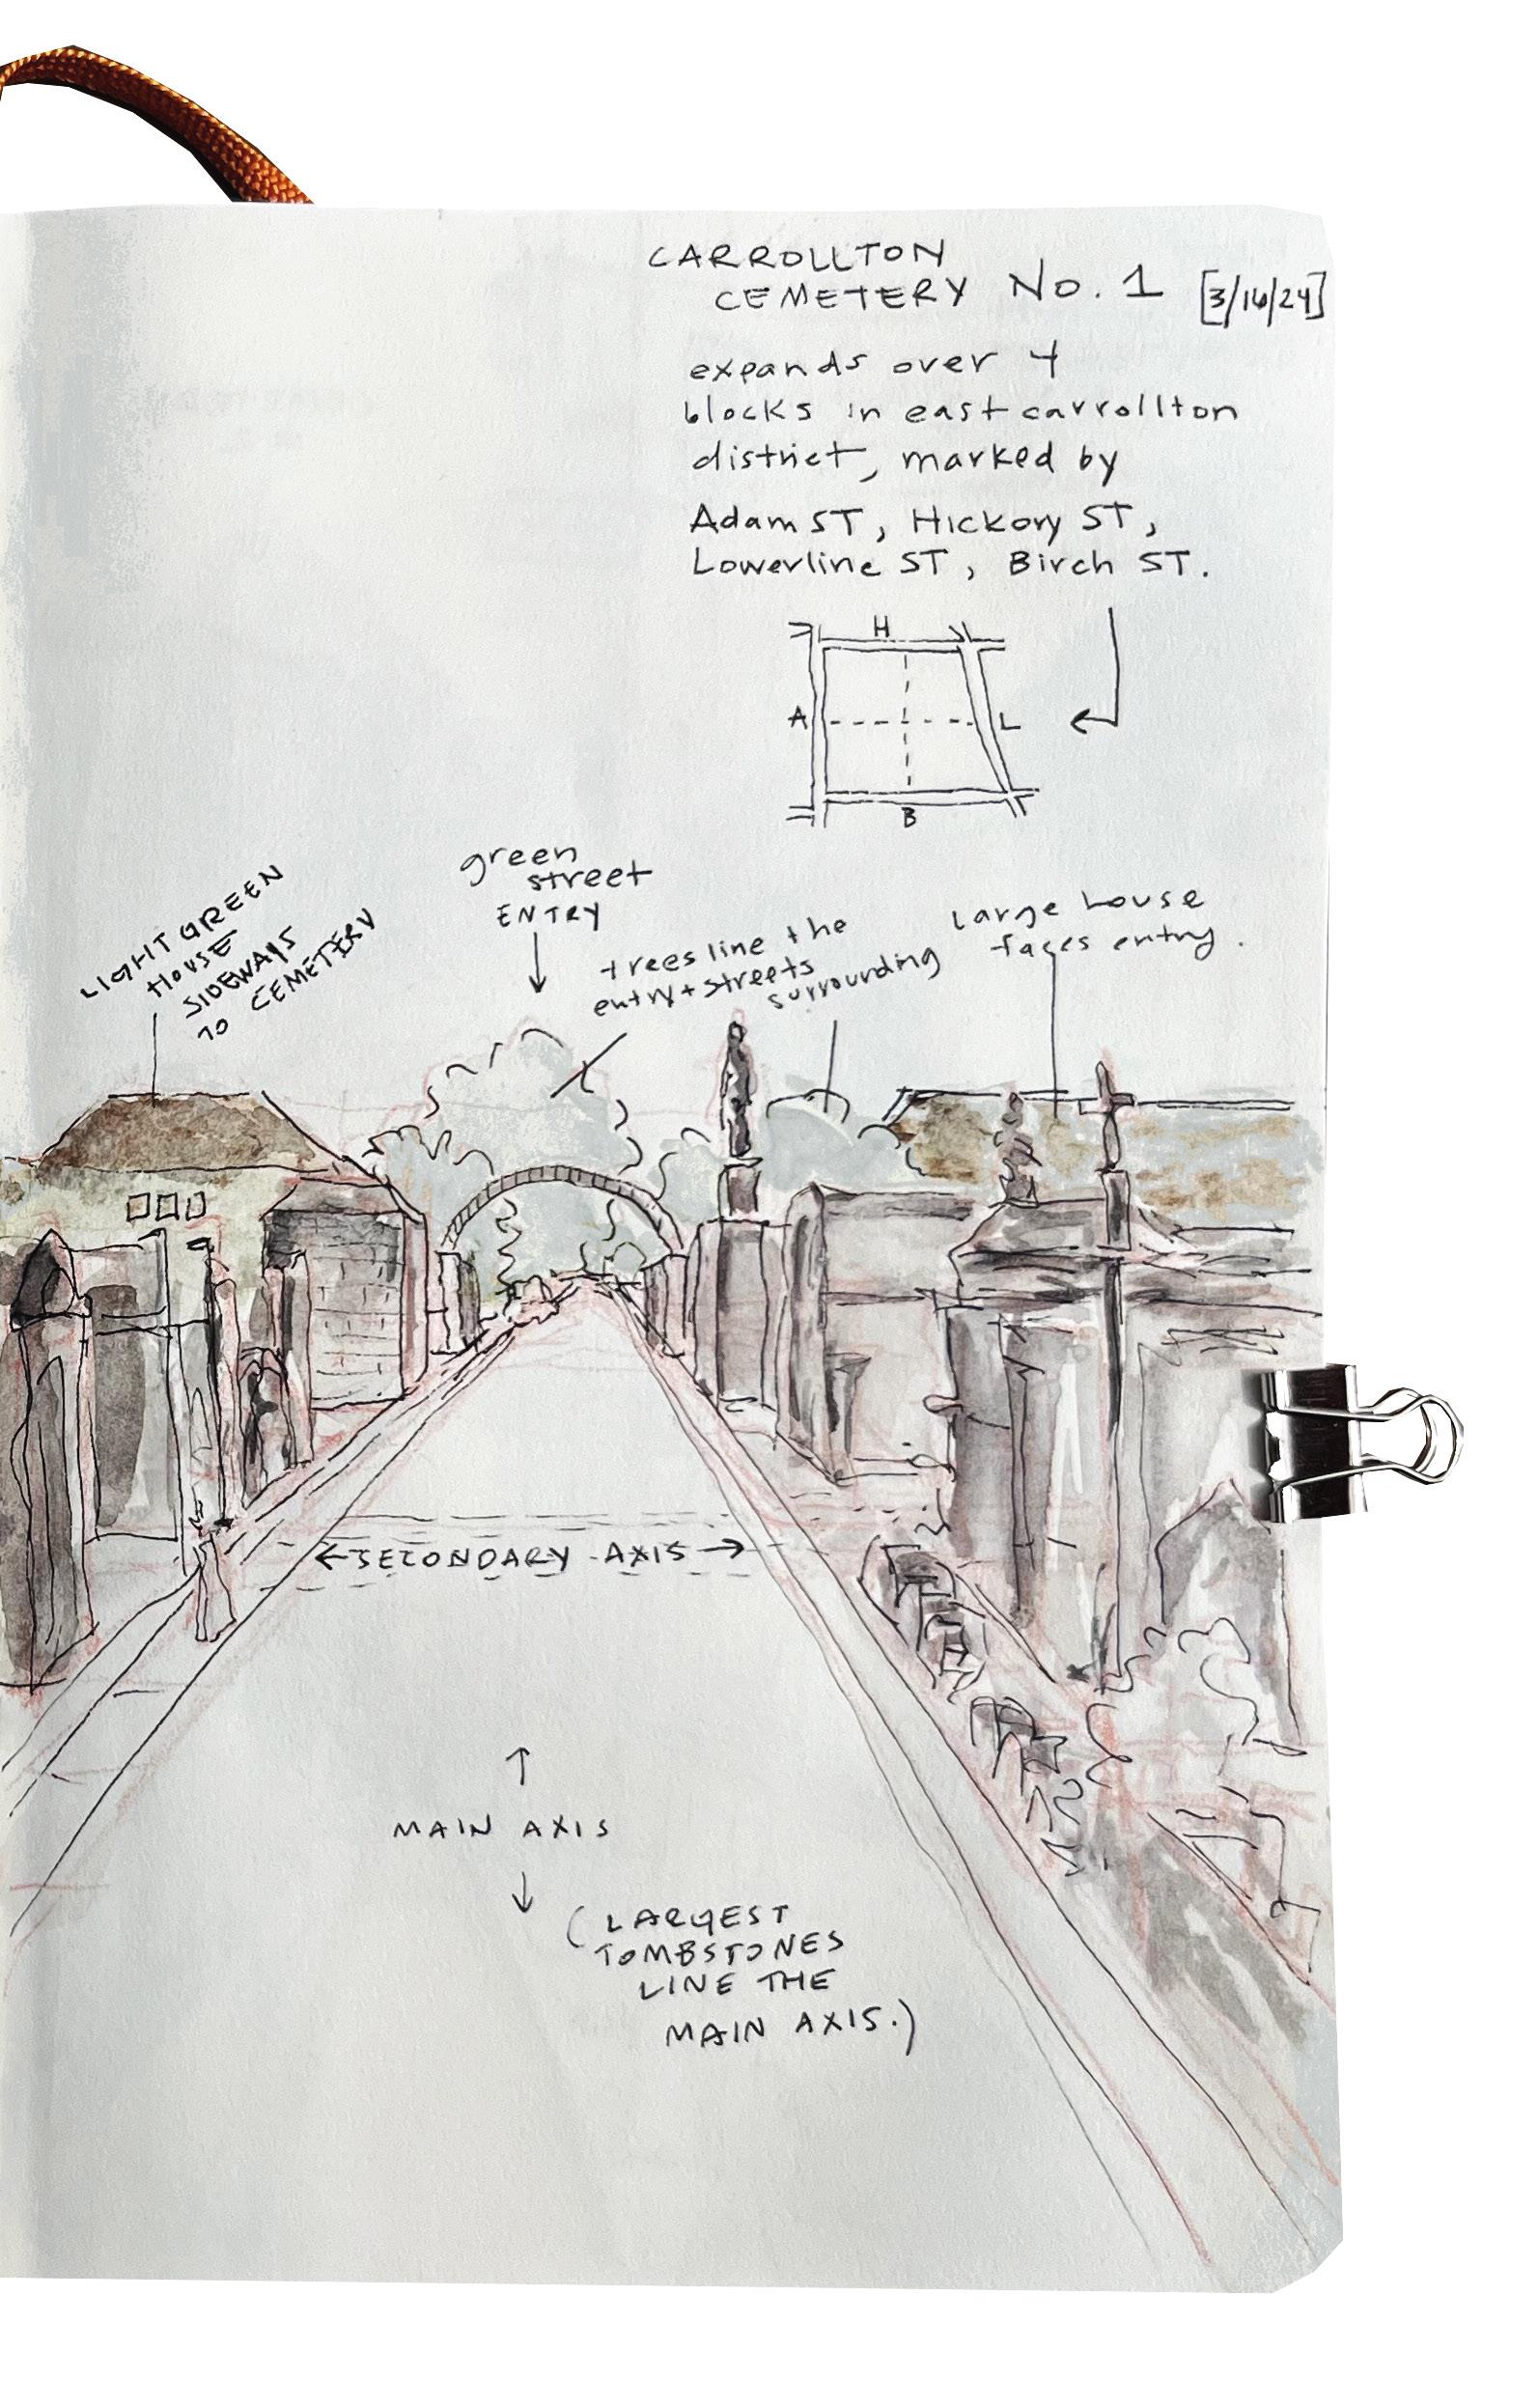 CARROLLTON
CEMETERY No. 1 [3/16/24]
expands over 4
blocks in east carrollton
district, marked by
Adam ST, Hickory ST,
Lowerline ST, Birch ST.
H
A
L
B
LIGHT GREEN
HOUSE
SIDEWAYS
TO CEMETERY
green
street
ENTRY
trees line the
entry + streets
surrounding
large house
faces entry.
SECONDARY AXIS
MAIN AXIS
(LARGEST
TOMBSTONES
LINE THE
MAIN AXIS.)